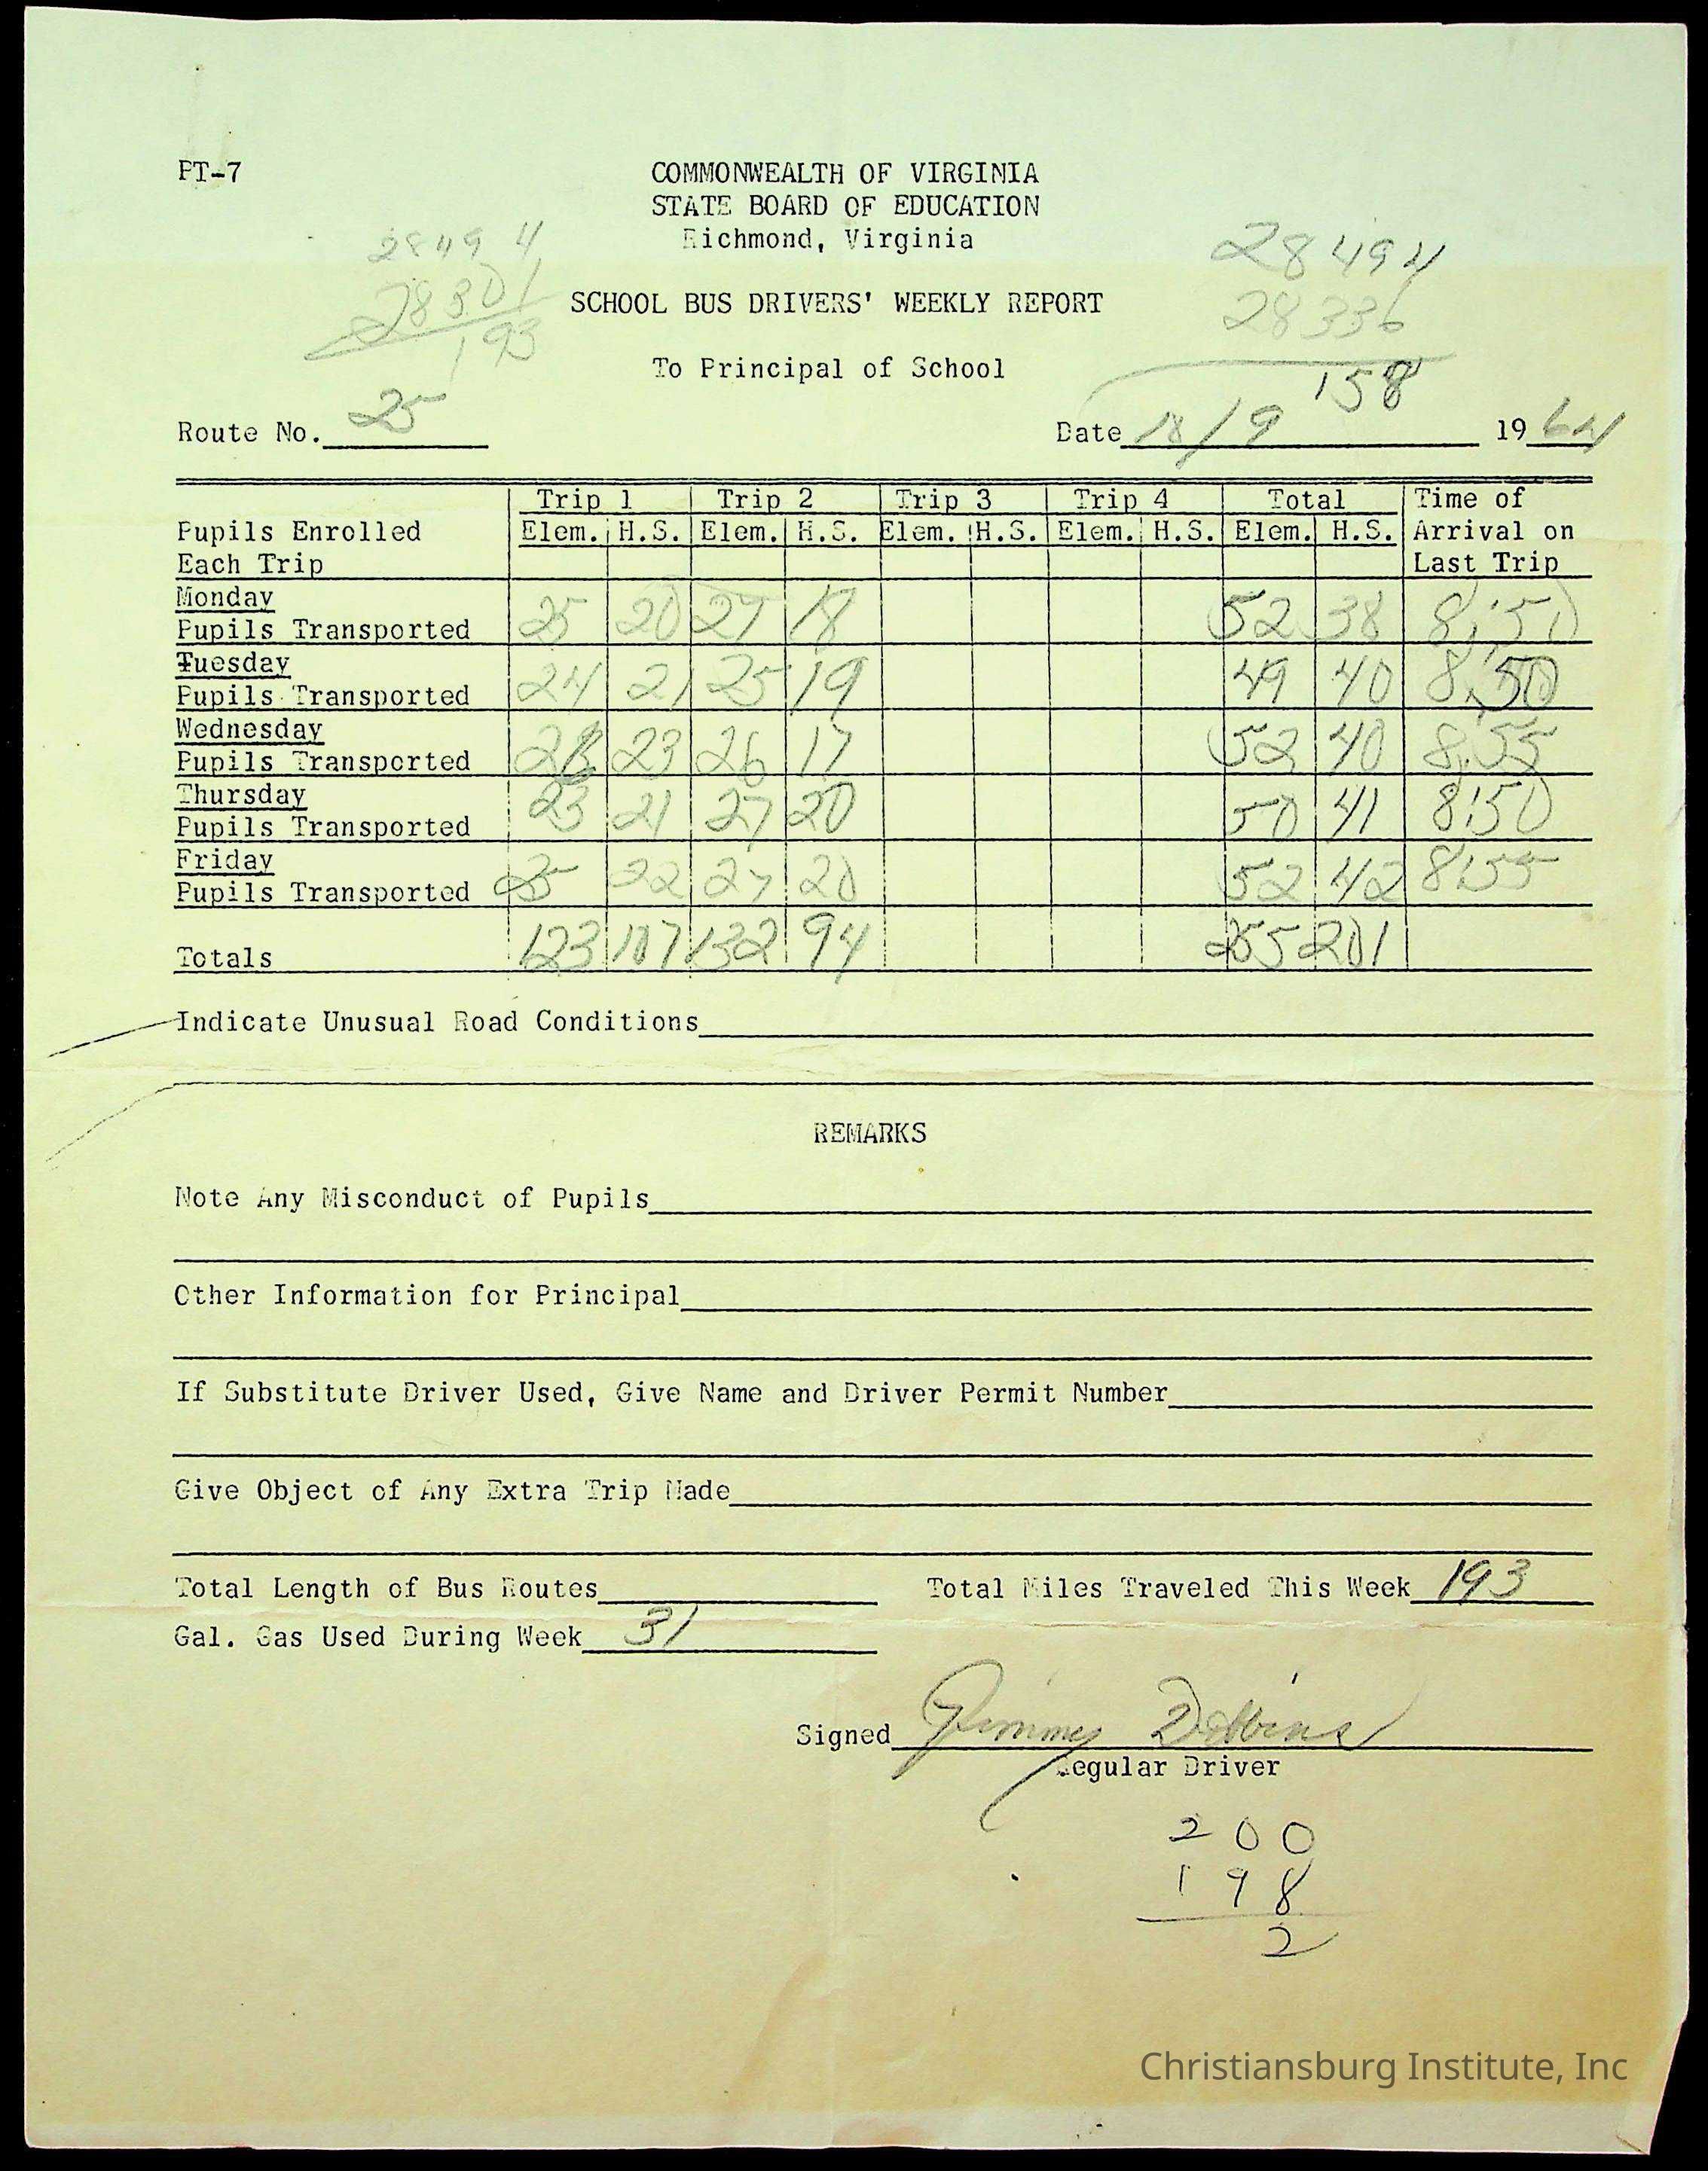 PT-7
COMMONWEALTH OF VIRGINIA
STATE BOARD OF EDUCATION
Richmond, Virginia
28494
28301
193
28494
28336
158
SCHOOL BUS DRIVERS' WEEKLY REPORT
To Principal of School
Route No. 25 Date 18/9 1964
Trip 1 Trip 2 Trip 3 Trip 4 Total Time of
Pupils Enrolled Elem. H.S. Elem. H.S. Elem. H.S. Elem. H.S. Elem. H.S. Arrival on
Each Trip Last Trip
Monday
Pupils Transported 25 20 27 18 52 38 8:50
Tuesday
Pupils Transported 24 21 25 19 49 40 8:50
Wednesday
Pupils Transported 23 26 17 52 40 8:55
Thursday
Pupils Transported 23 21 27 20 50 41 8:50
Friday
Pupils Transported 25 22 27 20 52 42 8:55
Totals 123 107 132 94 255 201
Indicate Unusual Road Conditions
REMARKS
Note Any Misconduct of Pupils
Other Information for Principal
If Substitute Driver Used, Give Name and Driver Permit Number
Give Object of Any Extra Trip Made
Total Length of Bus Routes Total Miles Traveled This Week 193
Gal. Gas Used During Week 31
Signed Jimmy Dobbins
Regular Driver
200
198
2
Christiansburg Institute, Inc